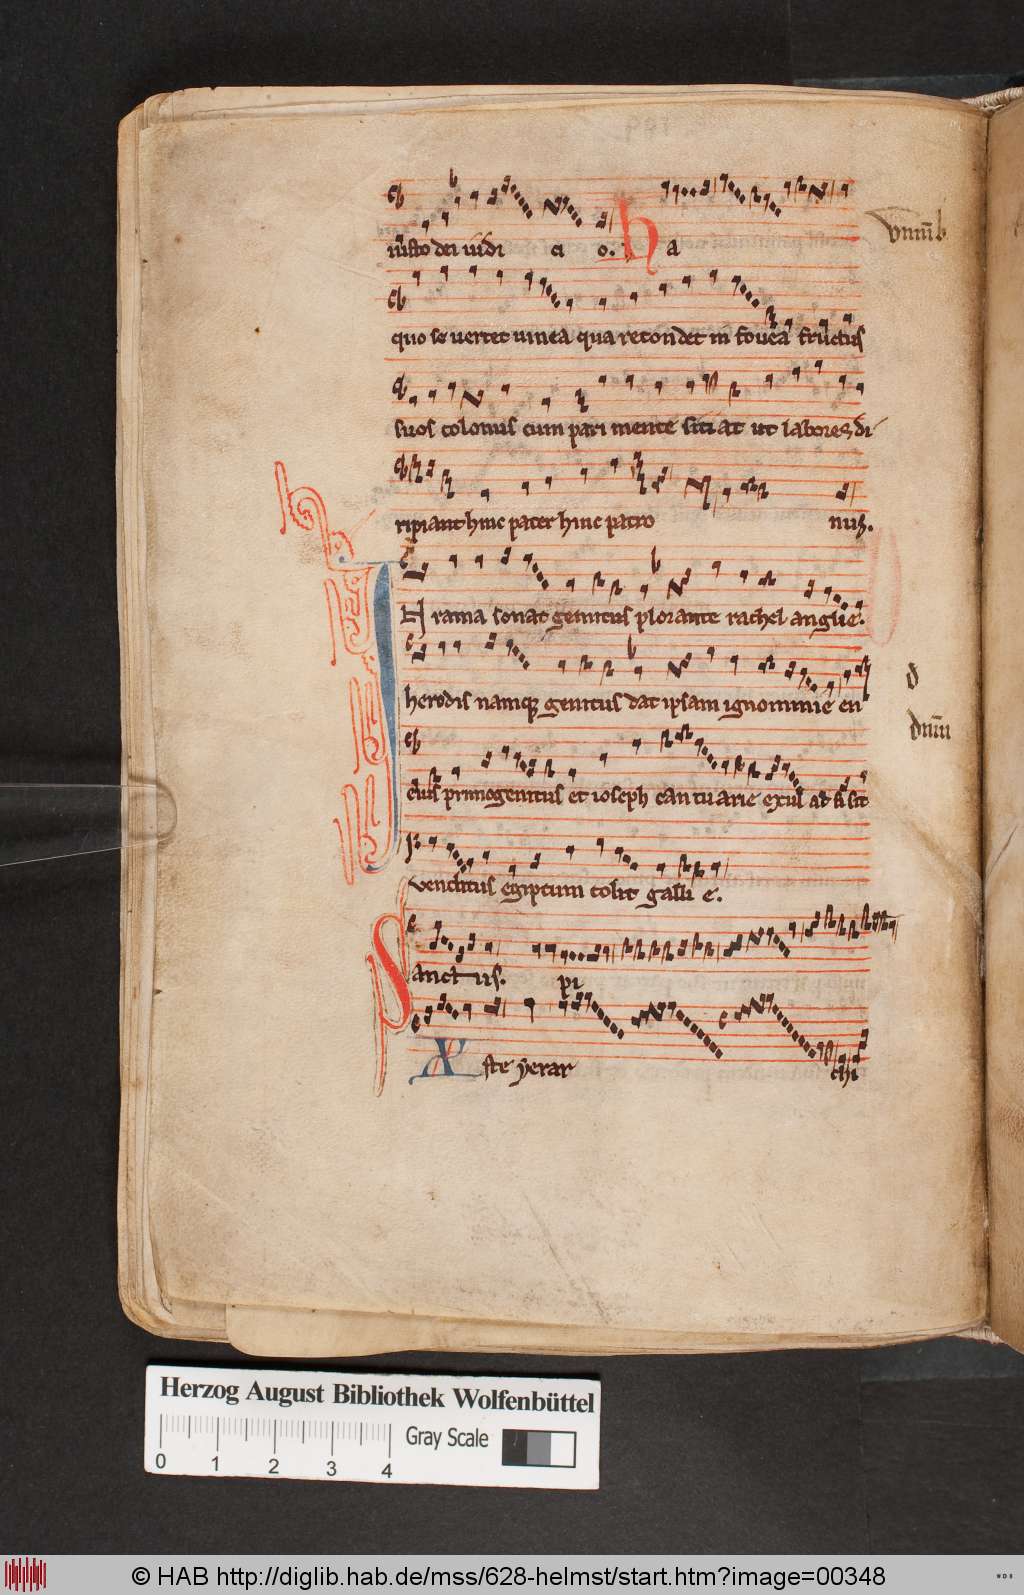 iusto dei iudi ci o. h a
quo se vertet vinea qua recondet in fovea fructus
suos colonus cum pari mente sitiat ut labores di
ripiant hinc pater hinc patro nus.
N rama sonat gemitus plorante rachel anglie.
herodis namque genitus dat ipsam ignominie en
eius primogenitus et ioseph cantuarie exul
venditus egiptum colit galli e.
Sanctus. pi
Xp̄ste yerar chi
Herzog August Bibliothek Wolfenbüttel
0 1 2 3 4
Gray Scale
© HAB http://diglib.hab.de/mss/628-helmst/start.htm?image=00348